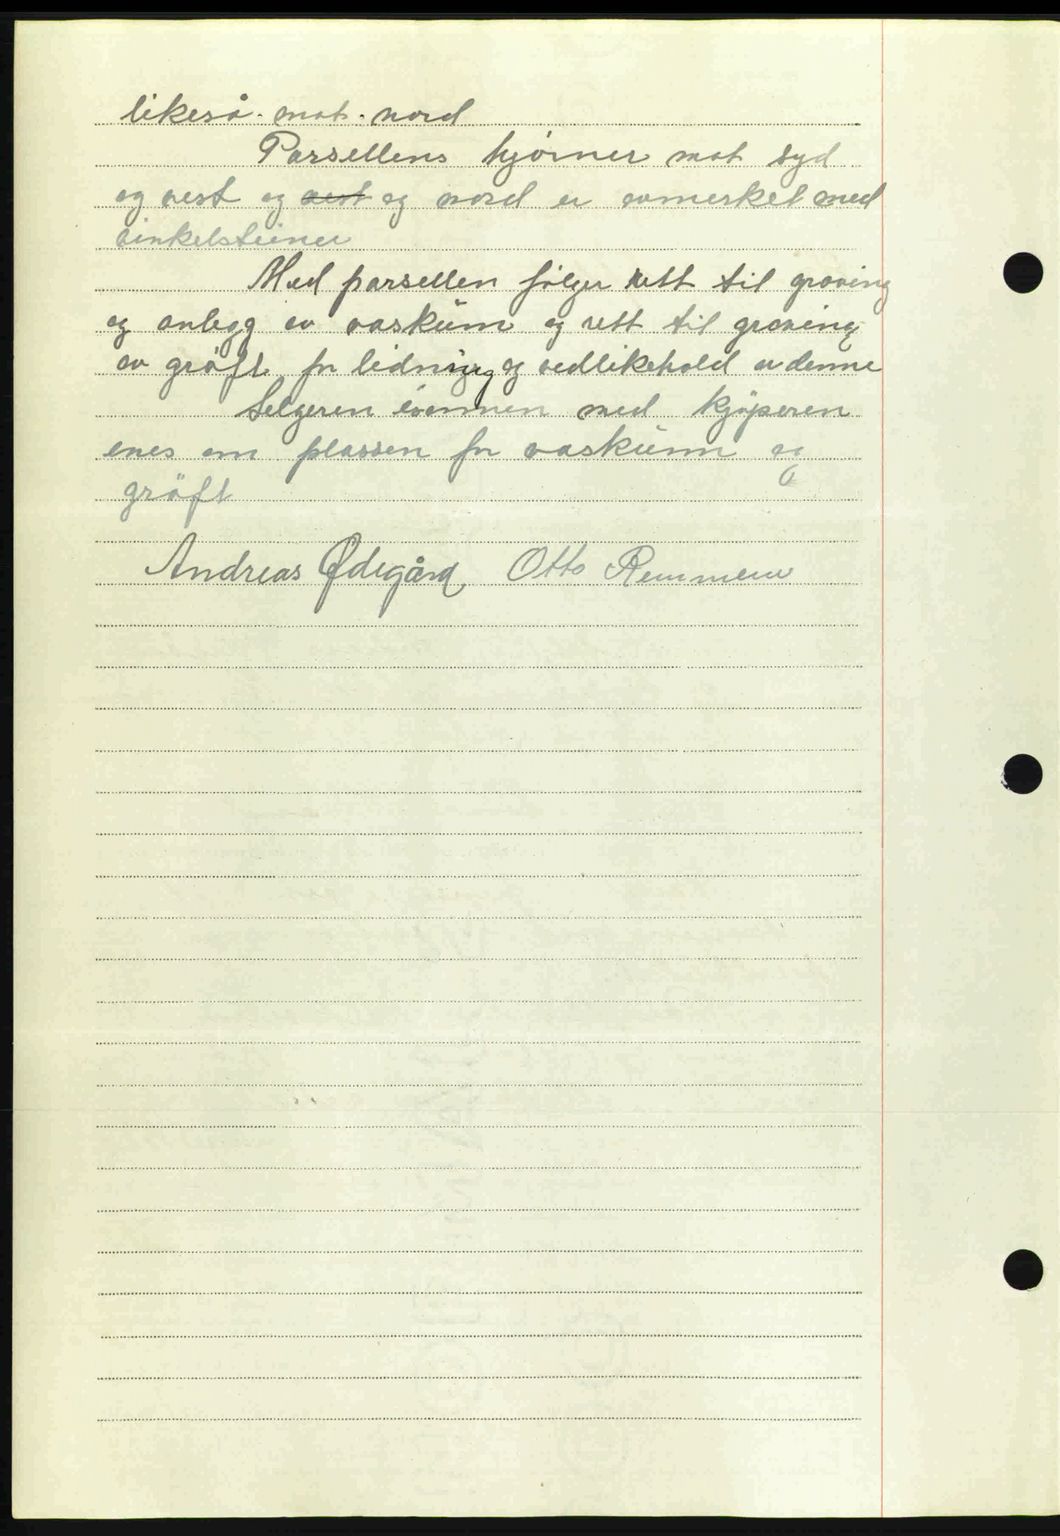 likeså mot nord
Parsellens hjørner mot syd
og vest og vest og nord er avmerket med
vinkelsteiner
Med parsellen følger rett til graving
og anlegg av vaskum og rett til graving
av gröft for lidning og vedlikehold av denne
Selgeren sammen med kjøperen
enes om plassen for vaskum og
gröft
Andreas Ødegård Otto Remmem